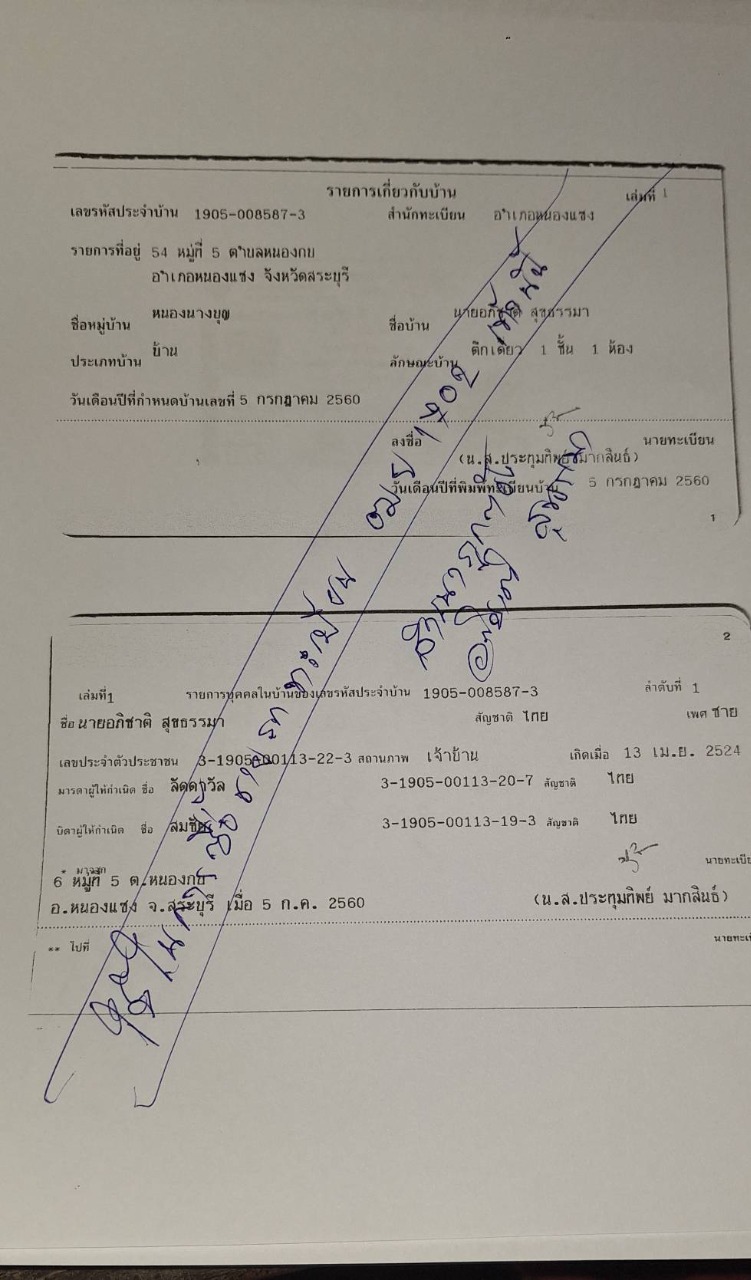 รายการเกี่ยวกับบ้าน เล่มที่ 1
เลขรหัสประจำบ้าน 1905-008587-3 สำนักทะเบียน อำเภอหนองแซง
รายการที่อยู่ 54 หมู่ที่ 5 ตำบลหนองกบ
อำเภอหนองแซง จังหวัดสระบุรี
ชื่อหมู่บ้าน หนองนางบุญ ชื่อบ้าน นายอภิชาติ สุขธรรมา
ประเภทบ้าน บ้าน ลักษณะบ้าน ตึกเดี่ยว 1 ชั้น 1 ห้อง
วันเดือนปีที่กำหนดบ้านเลขที่ 5 กรกฎาคม 2560
ลงชื่อ นายทะเบียน
(น.ส.ประทุมทิพย์ มากสินธ์)
วันเดือนปีที่พิมพ์ทะเบียนบ้าน 5 กรกฎาคม 2560
1
2
เล่มที่1 รายการบุคคลในบ้านของเลขรหัสประจำบ้าน 1905-008587-3 ลำดับที่ 1
ชื่อ นายอภิชาติ สุขธรรมา สัญชาติ ไทย เพศ ชาย
เลขประจำตัวประชาชน 3-1905-00113-22-3 สถานภาพ เจ้าบ้าน เกิดเมื่อ 13 เม.ย. 2524
มารดาผู้ให้กำเนิด ชื่อ ลัดดาวัล 3-1905-00113-20-7 สัญชาติ ไทย
บิดาผู้ให้กำเนิด ชื่อ สมชัย 3-1905-00113-19-3 สัญชาติ ไทย
* มาจาก นายทะเบี
6 หมู่ที่ 5 ต.หนองกบ
อ.หนองแซง จ.สระบุรี เมื่อ 5 ก.ค. 2560 (น.ส.ประทุมทิพย์ มากสินธ์)
** ไปที่ นายทะเบ
สำเนาถูกต้อง
อภิชาติ สุขธรรมา